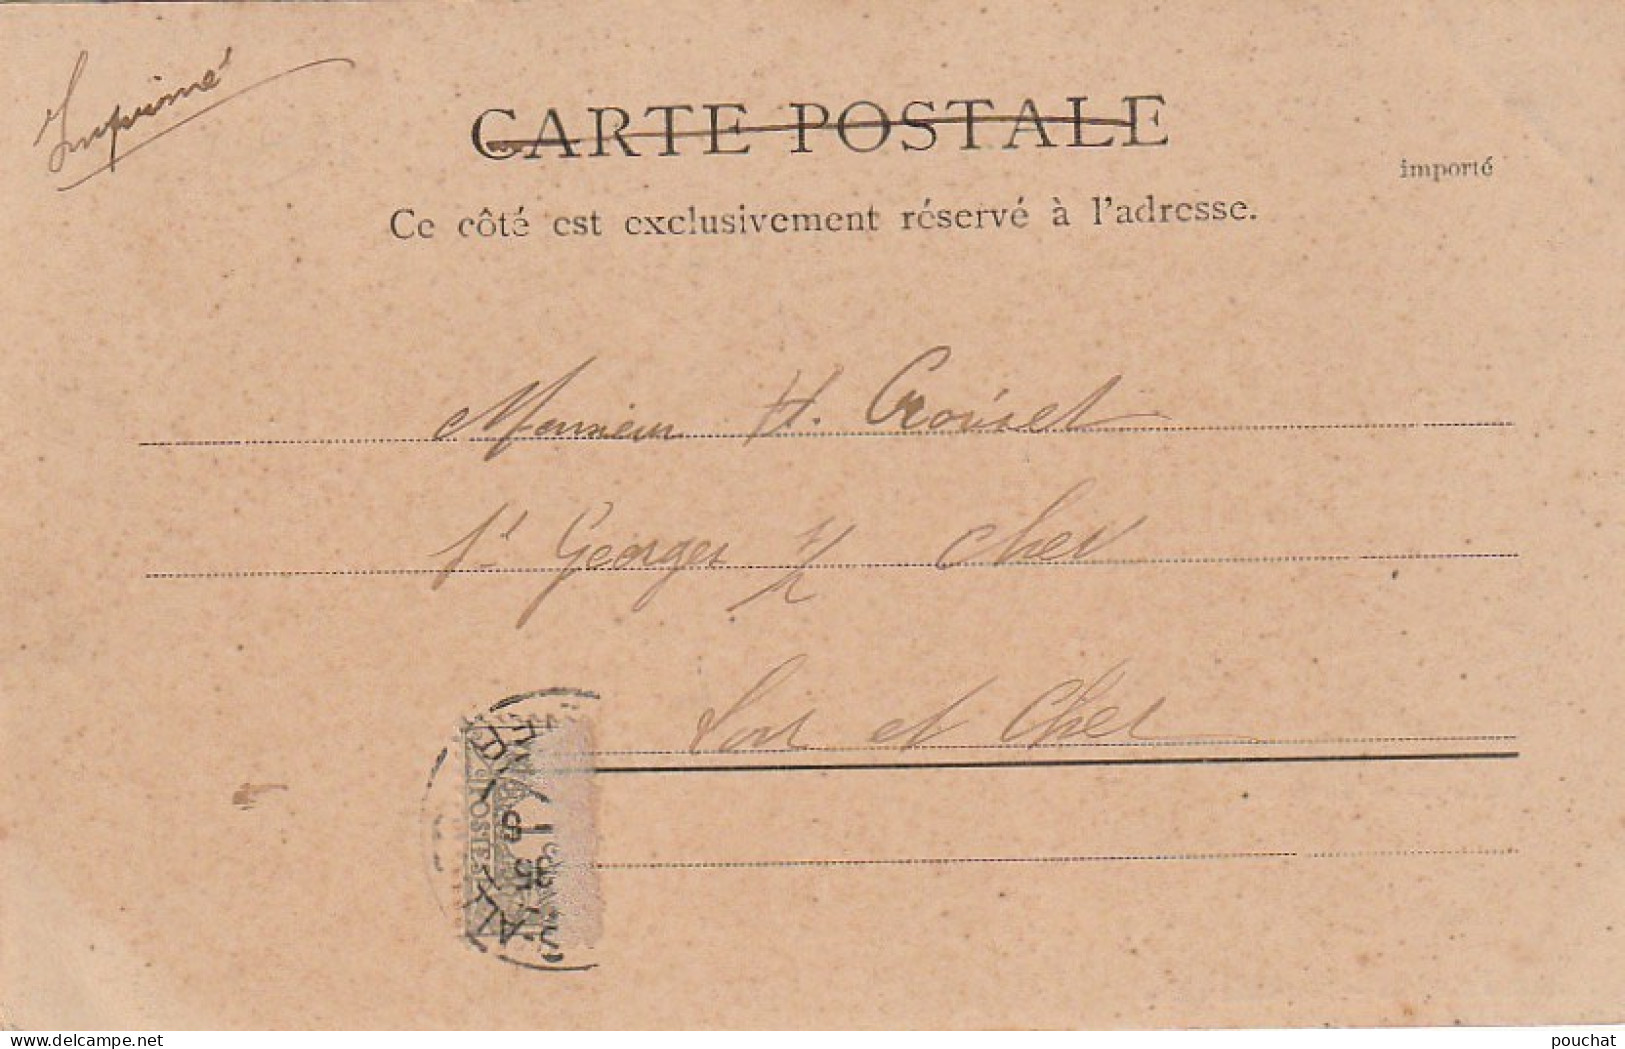 Imprimé
CARTE POSTALE
importé
Ce côté est exclusivement réservé à l'adresse.
Monsieur H. Croiset
St Georges s/ Cher
Loir et Cher
POSTES
delcampe.net
pouchat